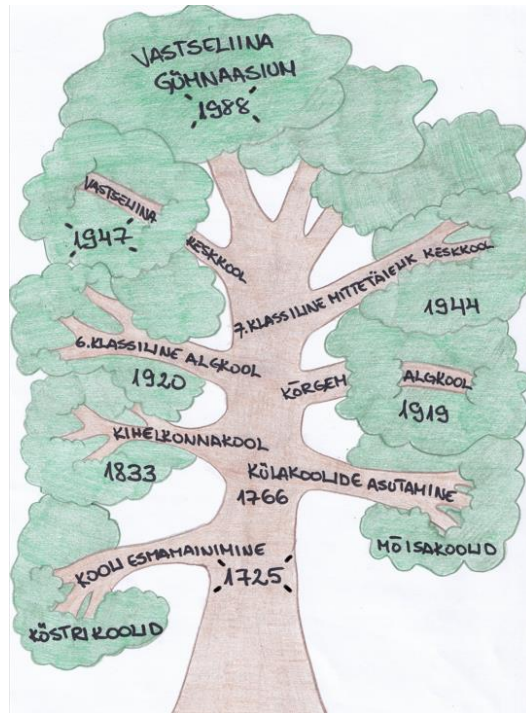 VASTSELIINA
GÜMNAASIUM
1988
VASTSELIINA KESKKOOL
1947
7.KLASSILINE MITTETÄIELIK KESKKOOL
1944
6.KLASSILINE ALGKOOL
1920
KÕRGEM ALGKOOL
1919
KIHELKONNAKOOL
1833
KÜLAKOOLIDE ASUTAMINE
1766
MÕISAKOOLID
KOOLI ESMAMAINIMINE
1725
KÖSTRIKOOLID